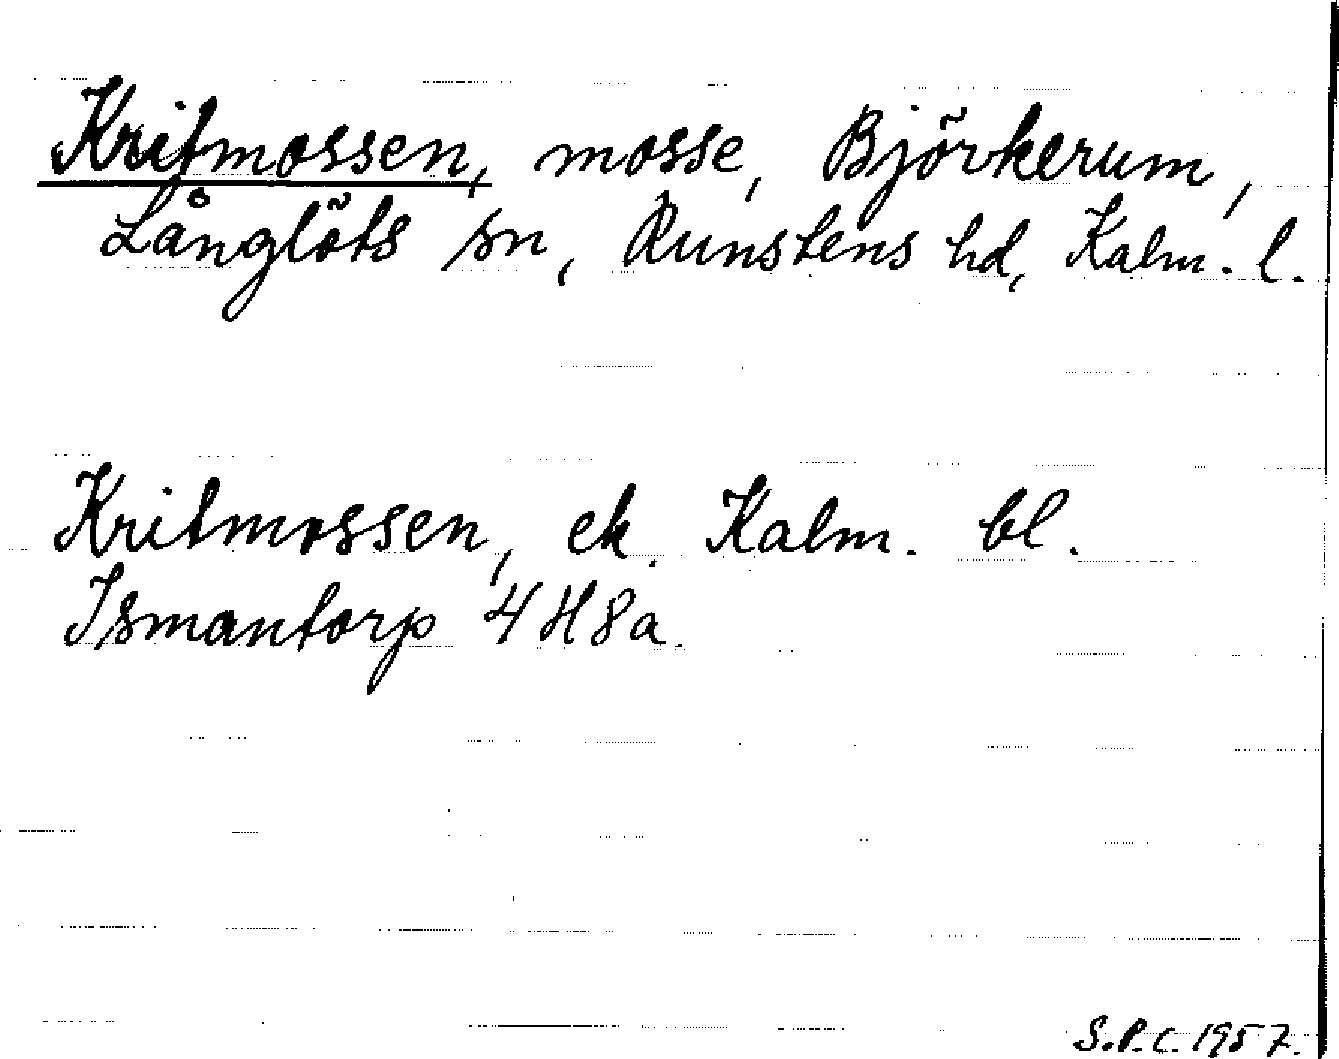 Kritmossen, mosse, Björkerum,
Långlöts sn, Runstens hd, Kalm. l.
Kritmossen, ek. Kalm. bl.
Ismantorp 4H8a.
S.P.C. 1957.